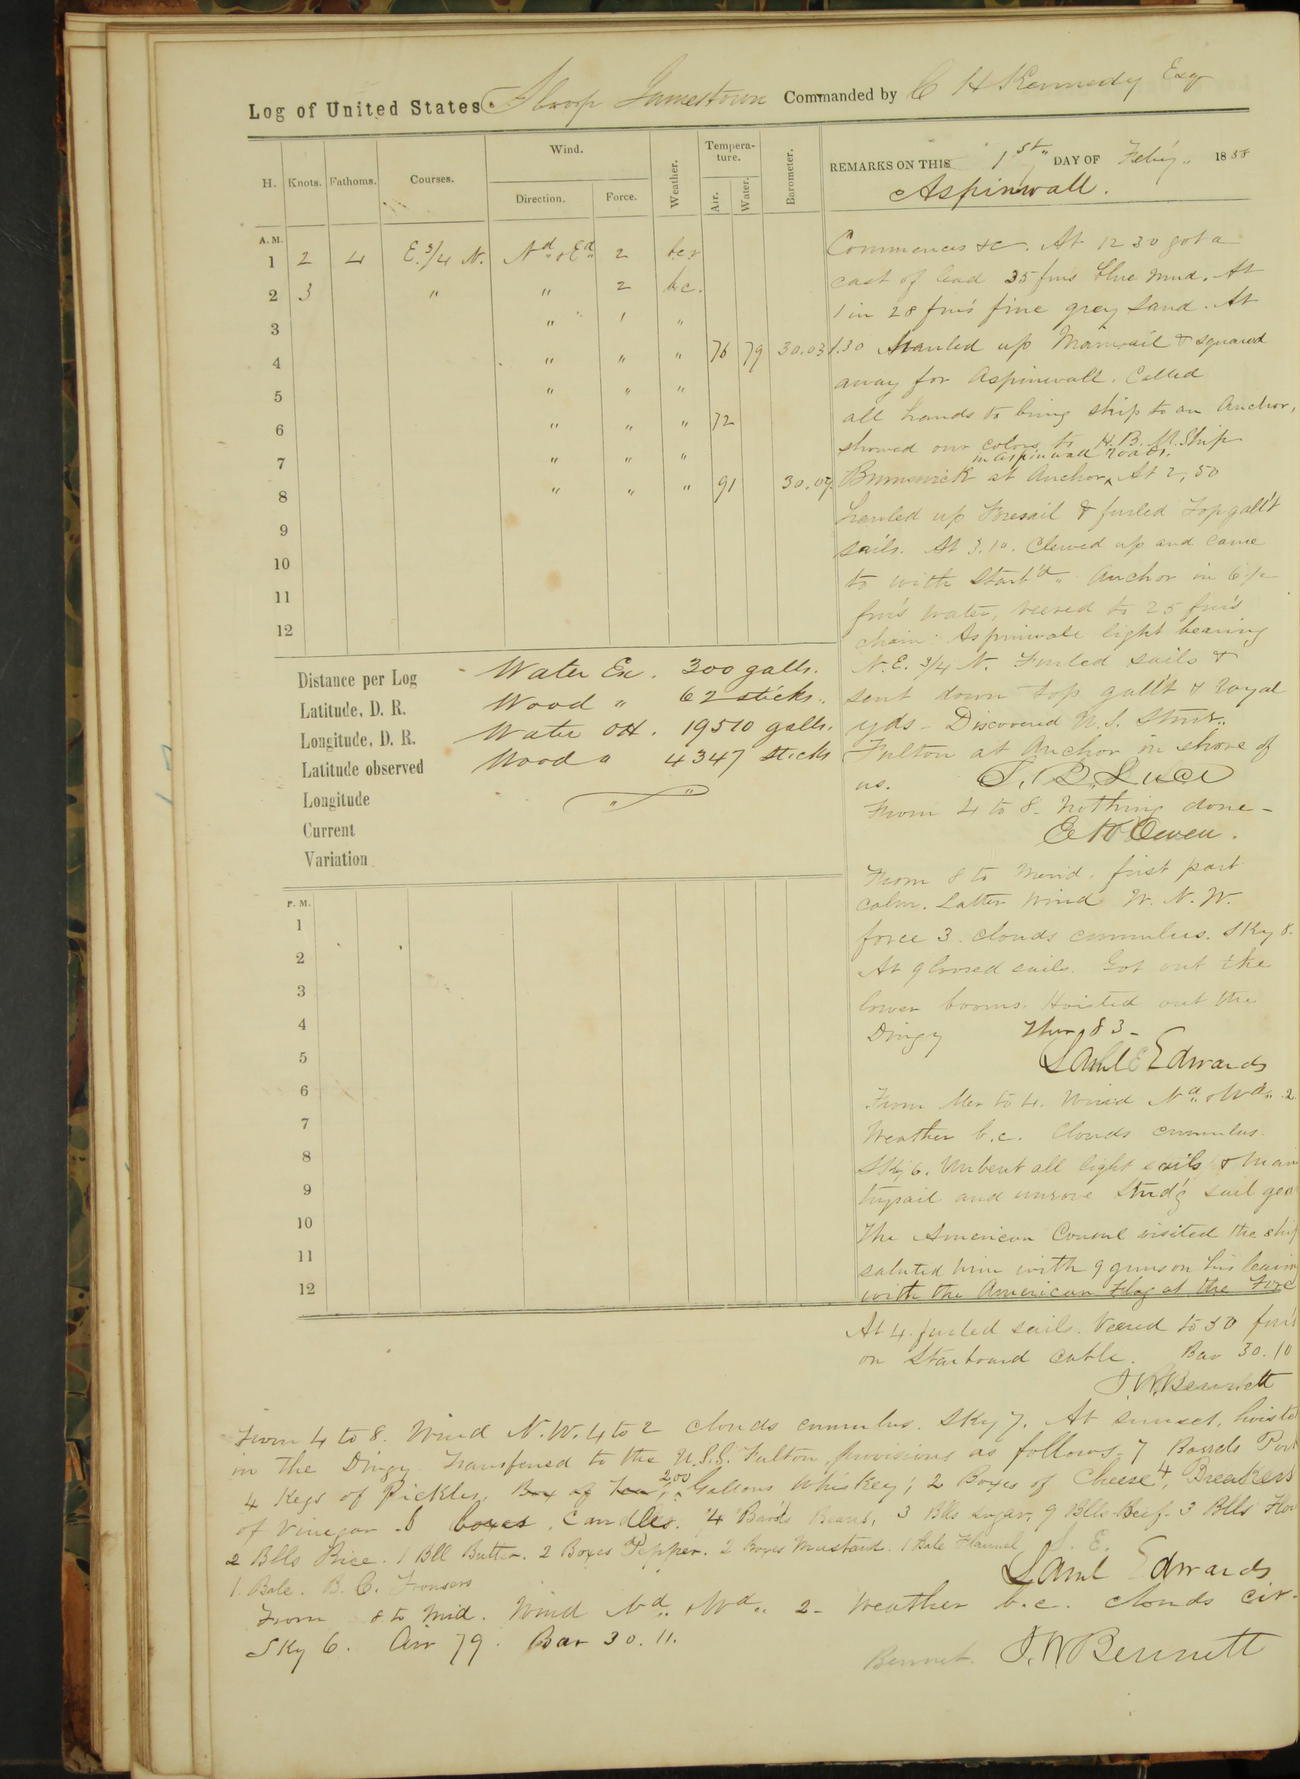 Log of United States Sloop Jamestown Commanded by C H Kennedy Esq
H. Knots. Fathoms. Courses. Wind. Direction. Force. Weather. Tempera-ture. Air. Water. Barometer.
REMARKS ON THIS 1st DAY OF Feb'y. 1858
Aspinwall.
A.M.
1 2 4 E. 3/4 N. Nd & Ed 2
2 3 " " 2 b.c.
3 " 1 "
4 " " " 76 79 30.03
5 " " "
6 " " " 72
7 " " "
8 " " " 91 30.09
9
10
11
12
Commences &c. At 12 30 got a
cast of lead 35 fm's blue mud. At
1 in 28 fm's fine grey sand. At
1.30 Hauled up Mainsail & squared
away for Aspinwall. Called
all hands to bring ship to an Anchor,
showed our colors to H.B.M. Ship
in Aspinwall roads.
Brunswick at Anchor ^ At 2,50
hauled up Foresail & furled Topgall't
sails. At 3.10. Clewed up and came
to with Starb'd Anchor in 6 1/2
fm's water, veered to 25 fm's
chain. Aspinwall light bearing
N.E. 3/4 N. Furled sails &
sent down top gall't & royal
yds - Discovered U.S. Stmr.
Fulton at Anchor in shore of
us. S. B. Luce
From 4 to 8. Nothing done -
Distance per Log
Latitude, D. R.
Longitude, D. R.
Latitude observed
Longitude
Current
Variation
Water Ex. 300 galls.
Wood " 62 sticks.
Water OH. 19510 galls.
Wood " 4347 sticks
From 8 to Merid. first part
calm. Latter Wind W. N. W.
force 3. clouds cumulus. Sky 8.
At 9 loosed sails. Got out the
lower booms. Hoisted out the
Dingy Ther, 83 -
Saml E Edwards
From Mer to 4. Wind Nd & Wd 2
Weather b.c. Clouds cumulus.
Sky 6. Unbent all light sails & main
trysail and unrove Stud'g sail gea
The American Consul visited the ship
saluted him with 9 guns on his leavin
with the American Flag at the Fore
P.M.
1
2
3
4
5
6
7
8
9
10
11
12
At 4 furled sails. Veered to 30 fm's
on Starboard cable. Bar 30.10
J.W. Bennett
From 4 to 8. Wind N.W. 4 to 2 clouds cumulus. Sky 7. At sunset, hoiste
in the Dingy. Transfered to the U.S.S. Fulton, provisions as follows - 7 Barrels Por
4 Kegs of Pickles, Box of Tea, 200 Gallons Whiskey; 2 Boxes of Cheese, 4 Breakers
of Vinegar. 8 boxes, Candles. 4 Barr'ls beans, 3 Blls sugar, 9 Blls Beef - 3 Blls Flou
2 Blls Rice. 1 Bll Butter. 2 Boxes Pepper. 2 Boxes Mustard. 1 Bale Flannel S. E.
1. Bale. B. C. Trousers Saml Edwards
From 8 to Mid. Wind Nd & Wd 2 - Weather b.c. Clouds cir.
Sky 6. Air 79. Bar 30.11.
Bennet. J.W Bennett